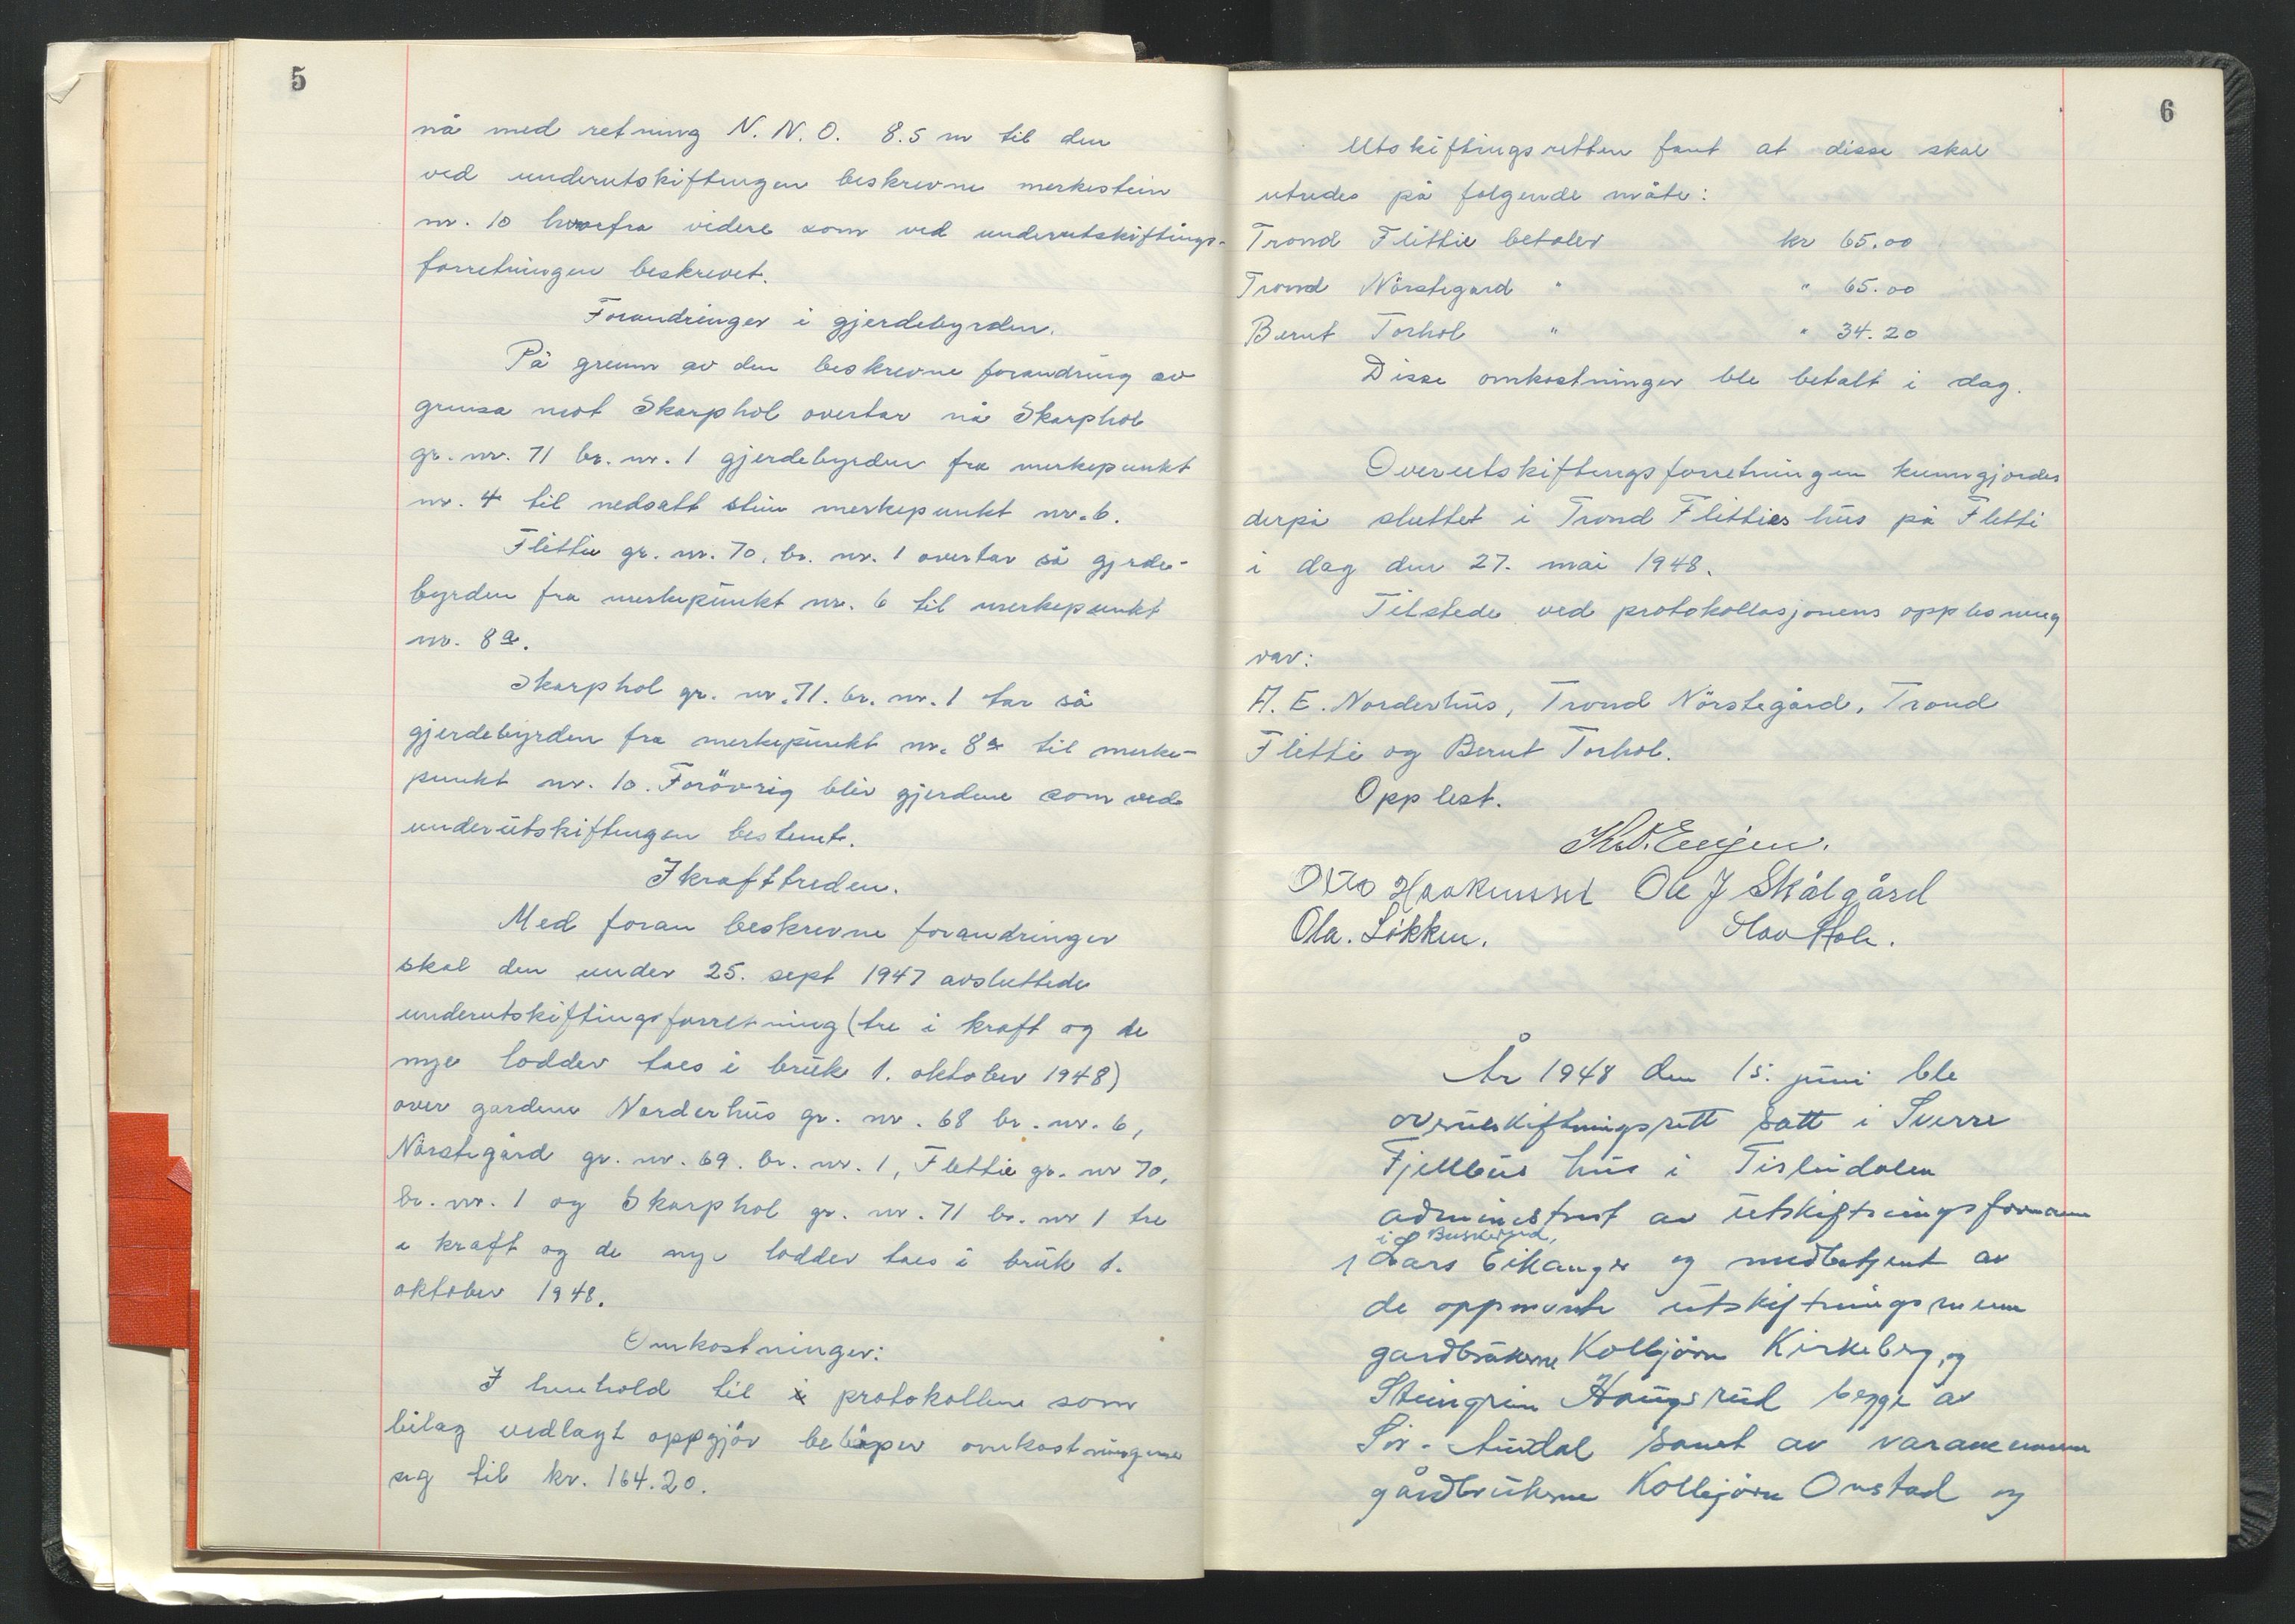 5
nå med retning N. N. O. 8.5 m til den
ved underutskiftingen beskrevne merkestein
nr. 10 hvorfra videre som ved underutskiftings-
forretningen beskrevet.
Forandringer i gjerdebyrden.
På grunn av den beskrevne forandring av
grensa mot Skarphol overtar nå Skarphol
gr. nr. 71 br. nr. 1 gjerdebyrden fra merkepunkt
nr. 4 til nedsatt stein merkepunkt nr. 6.
Flittie gr. nr. 70, br. nr. 1 overtar så gjerde-
byrden fra merkepunkt nr. 6 til merkepunkt
nr. 8a.
Skarphol gr. nr. 71. br. nr. 1 tar så
gjerdebyrden fra merkepunkt nr. 8a til merke-
punkt nr. 10. Forövrig blir gjerdene som ved
underutskiftingen bestemt.
Ikrafttreden.
Med foran beskrevne forandringer
skal den under 25. sept 1947 avsluttede
underutskiftingsforretning (tre i kraft og de
nye lodder taes i bruk 1. oktober 1948)
over gardene Norderhus gr. nr. 68 br. nr. 6,
Nörstegård gr. nr. 69. br. nr. 1, Flettie gr. nr 70,
br. nr. 1 og Skarphol gr. nr. 71 br. nr 1 tre
i kraft og de nye lodder taes i bruk 1.
oktober 1948.
Omkostninger:
I henhold til protokollen som
bilag vedlagt oppgjör belöper omkostningene
seg til kr. 164.20.
6
Utskiftingsretten fant at disse skal
utredes på folgende måte:
Trond Flittie betaler kr 65.00
Trond Nörstegard " " 65.00
Bernt Torhol " " 34.20
Disse omkostninger ble betalt i dag.
Overutskiftingsforretningen kunngjordes
derpå sluttet i Trond Flitties hus på Fletti
i dag den 27. mai 1948.
Tilstede ved protokollasjonens opplesning
var:
A. E. Norderhus, Trond Nörstegård, Trond
Flitti og Bernt Torhol.
Opplest.
Otto Haakenstad Ole J Skålgård
Ola. Løkken. Olav Hole.
År 1948 den 15. juni ble
overutskiftningsrett satt i Sverre
Fjellbus hus i Tisleidalen
administrert av utskiftningsformann
i Buskerud,
Lars Eikanger og medbetjent av
de oppnevnte utskiftningsmenn
gardbrukerne Kolbjørn Kirkeberg, og
Steingrim Haugsrud begge av
Sør-Aurdal samt av varamennene
gårdbrukerne Kolbjørn Onstad og